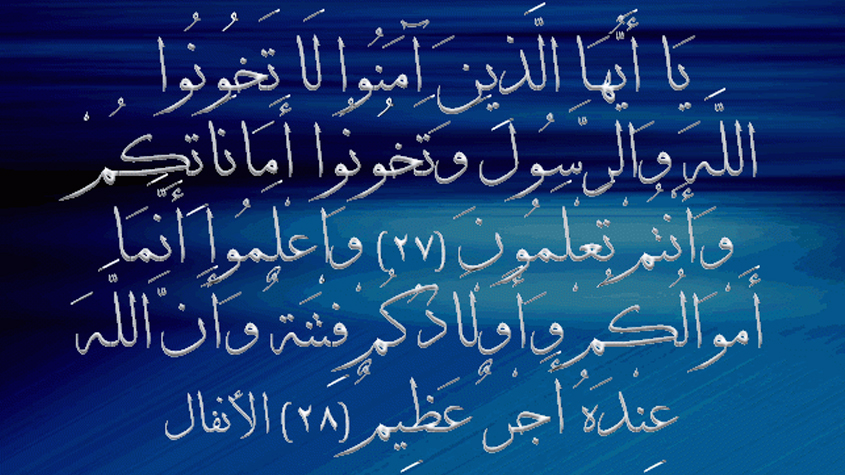 يَا أَيُّهَا الَّذِينَ آمَنُوا لَا تَخُونُوا
اللَّهَ وَالرَّسُولَ وَتَخُونُوا أَمَانَاتِكُمْ
وَأَنتُمْ تَعْلَمُونَ (٢٧) وَاعْلَمُوا أَنَّمَا
أَمْوَالُكُمْ وَأَوْلَادُكُمْ فِتْنَةٌ وَأَنَّ اللَّهَ
عِندَهُ أَجْرٌ عَظِيمٌ (٢٨) الأنفال